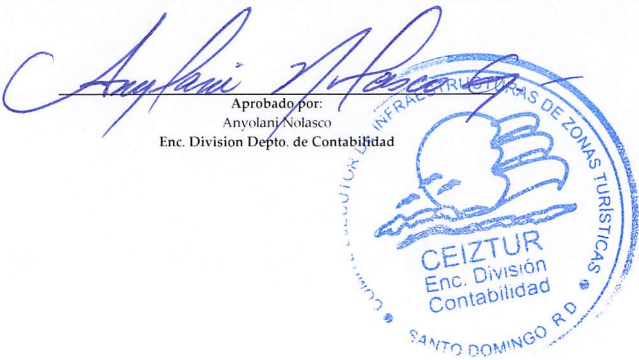 Anyolani Nolasco G
Aprobado por:
Anyolani Nolasco
Enc. Division Depto. de Contabilidad
INFRAESTRUCTURAS DE ZONAS TURÍSTICAS
CEIZTUR
Enc. División
Contabilidad
SANTO DOMINGO R D